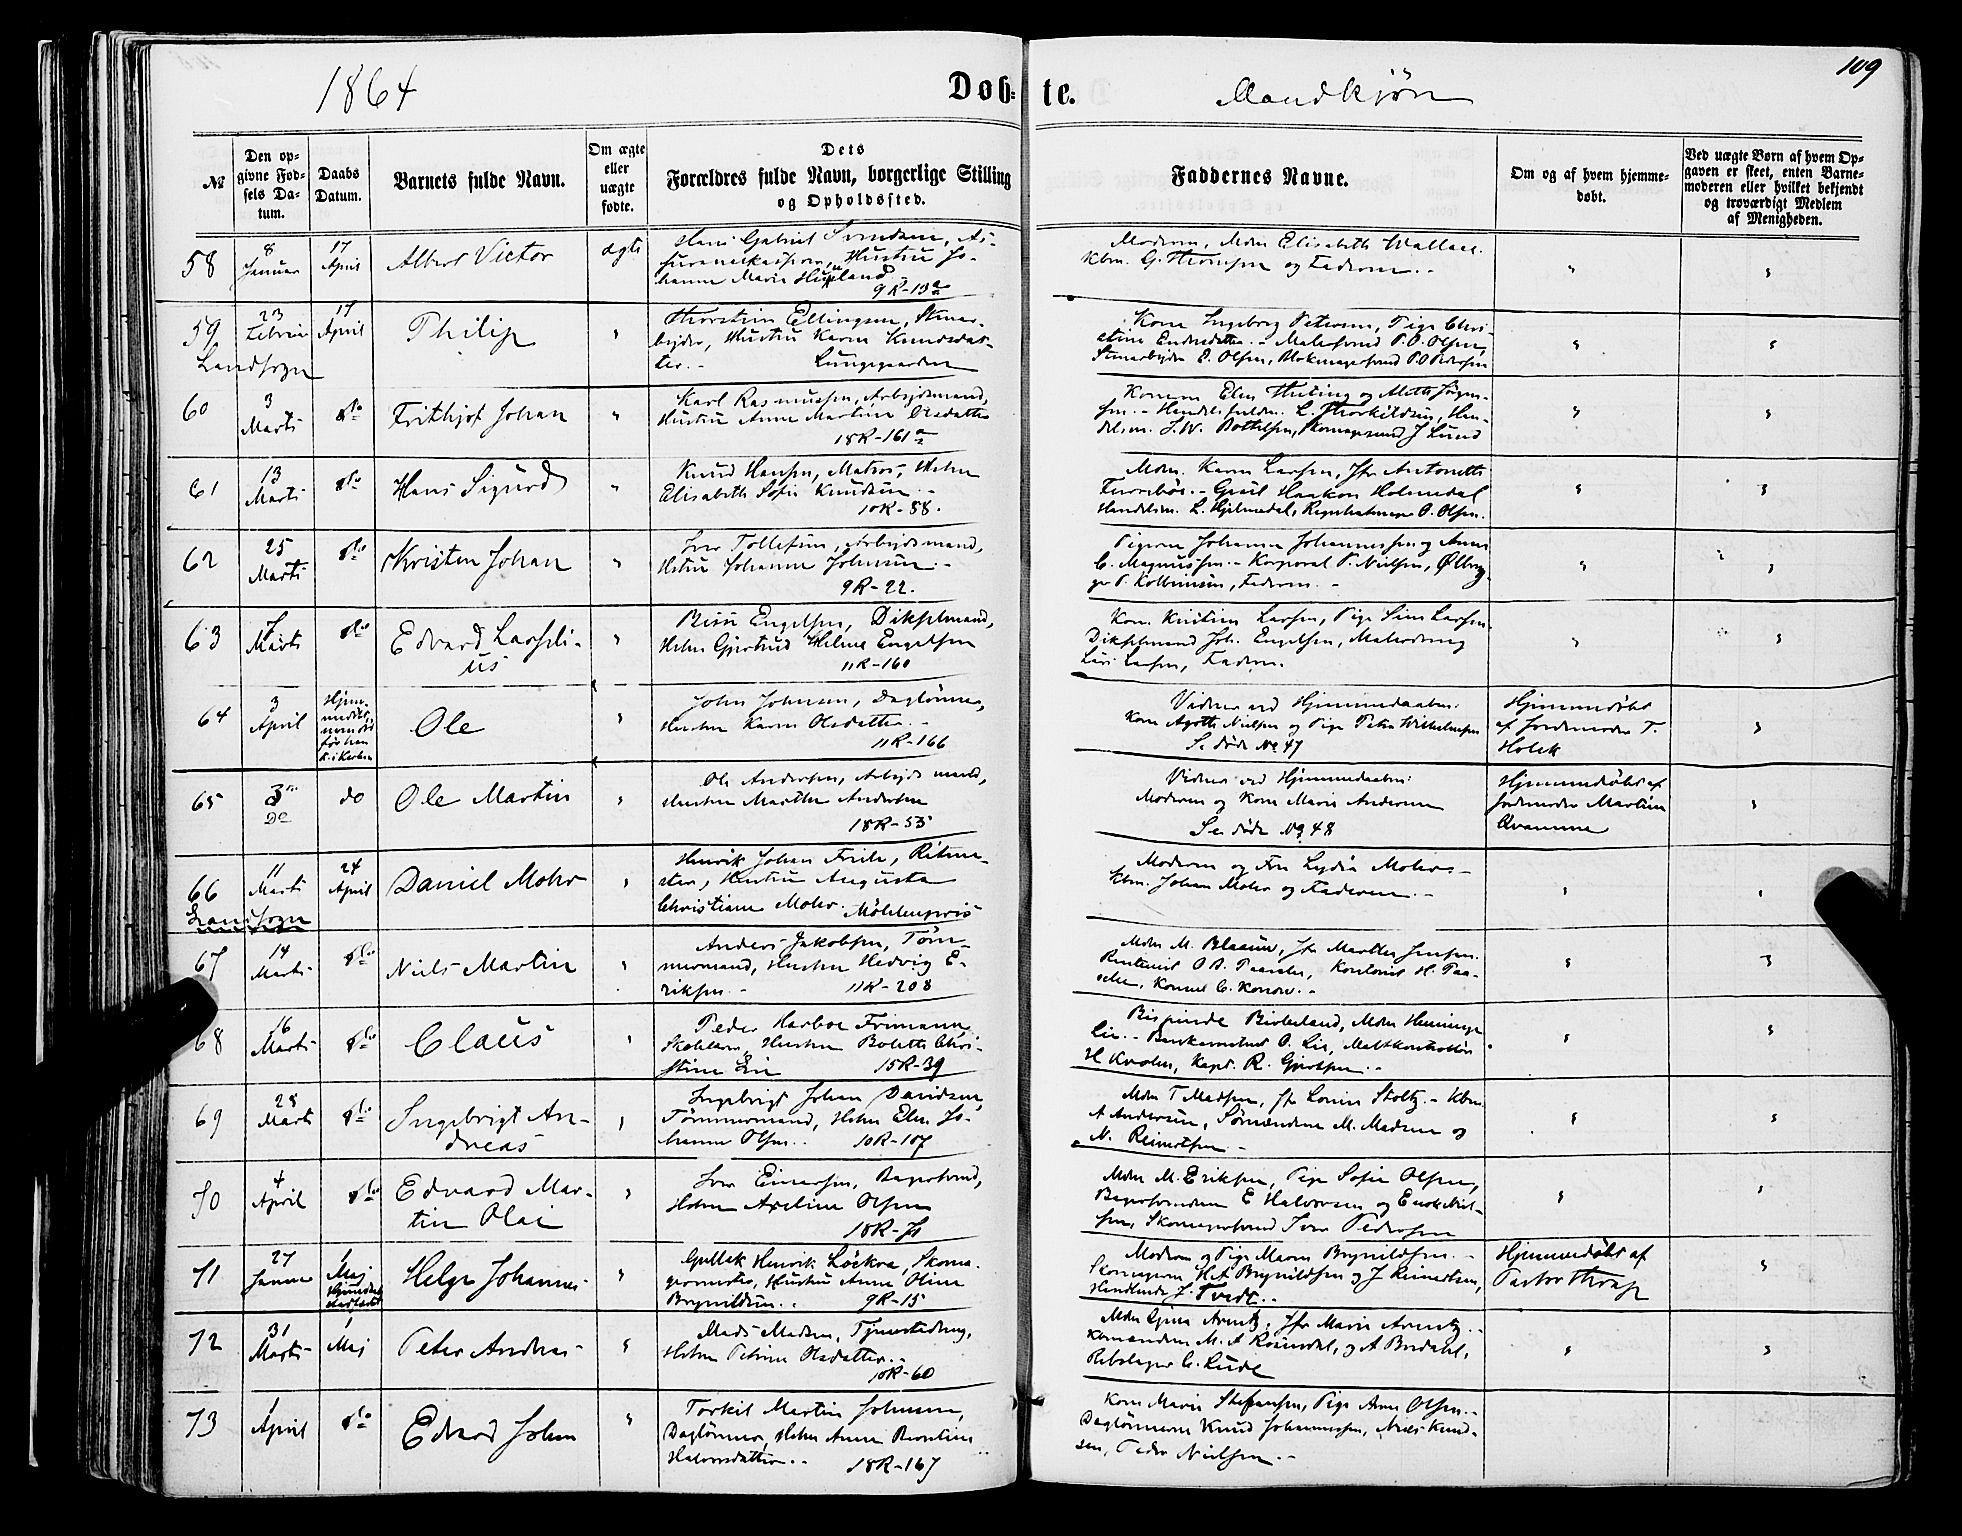 109
1864
Døb- te.
Mandkjøn
№
Den op-
givne Fød-
sels Da-
tum.
Daabs
Datum.
Barnets fulde Navn.
Om ægte
eller
uægte
fødte.
Dets
Forældres fulde Navn, borgerlige Stilling
og Opholdssted.
Faddernes Navne.
Om og af hvem hjemme-
døbt.
Ved uægte Børn af hvem Op-
gaven er skeet, enten Barne-
moderen eller hvilket bekjendt
og troværdigt Medlem
af Menigheden.
58
8
Januar
17
April
Albert Victor
ægte
Hans Gabriel Svendsen, As-
Hustru Jo-
hanne Marie
9R-13a
Moderen, Mdm Elisabeth Wallace.
Kbm. G. Thomsen og Faderen.-
59
Landsogn
23
Februar
17
April
Philip
Thorstein Ellingsen, Stuear-
beider, Hustru Karen Knudsdat-
ter.-
Lungegaarden
Kone Ingeborg Petersen, Pige Chri-
stine
P. O. Olsen,
Stuearbeider E. Olsen,
60
3
Marts
do
Frithjof Johan
Karl Rasmussen, Arbejdsmand,
Hustru Anne Martine Olsdatter
18R-161a
L. Thorkildsen, Han-
delsm. J. W. Bottelsen, Skomagersvend J Lund
61
13
Marts
do
Hans Sigurd
Knud Hansen, Matros, Hstru
Elisabeth Sofie Knudsen.-
10R-88.
Mdm. Karen Larsen, Jfr Antonette
Haakon Holmedal
Handelsm. L. Hjelmedal, O. Olsen.
62
25
Marts
do
Kristen Johan
Iver Tollefsen, Arbejdsmand,
Hstru Johanne Johnsen.-
9R-22.
Pigerne Johanne Johannessen og Anne
C. Magnussen.- Korporal P. Nielsen, Ølbryg-
ger T. Kolbeinsen, Faderen.-
63
7
Marts
do
Edvard Lasseli-
us
Engelsen, Dikselmand,
Hstru Gjertrud Helene Engelsen
11R-160
Kone Kristine Larsen, Pige Sina Larsen.
Dikselmand Joh. Engelsen, Malerdreng
Lars Larsen, Faderen.
64
3
April
Ole
John Johnsen, Daglønner,
Hustru Karen Olsdatter.-
11R-166
Vidner ved Hjemmedaaben:
Kone Agathe Nielsen og Pige Petra Wilhelmsen
Se døde No 47
Hjemmedøbt
af Jordmoder T.
Holck
65
3
Do
do
Ole Martin
Ole Andersen, Arbejdsmand,
Hustru Marthe Andersen
18R-55
Vidner ved Hjemmedaaben:
Moderen og Kone Marie Andersen
Se døde No 48
Hjemmedøbt af
Jordmoder Martine
Qvamme
66
Landsogn
11
Marts
24
April
Daniel Mohr
Henrik Johan Friele, Ritme-
ster, Hustru Augusta
Christiane Mohr. Møhlenpris
Moderen og Fru Lydia Mohr.-
Kbm. Johan Mohr og Faderen.-
67
14
Marts
do
Niels Martin
Anders Jakobsen, Tøm-
mermand, Hustru Hedvig E-
riksen.-
11R-208
Mdm M. Blaauw, Jfr Marthe Jensen.
Konsul C. Konow.-
68
16
Marts
do
Claus
Peder Harboe Frimann
Hustru Bolette Chri-
stine Lie
15R-39
Lie.- O. Lie,
H Kvalen, Kapt. R. Gjertsen.-
69
28
Marts
do
Ingebrigt An-
dreas
Ingebrigt Johan Davidsen,
Tømmermand, Hstru Elen Jo-
hanne Olsen..
10R-107
Mdm T Madsen, Jfr Louise Stoltz.- Kbm.
A Andersen, Sømændene M. Madsen og
N. Reinertsen.-
70
4
April
do
Edvard Mar-
tin Olai
Iver Einersen, Bagersvend,
Hstru Axeline Olsen
18R-71
Mdm M. Eriksen, Pige Sofie Olsen,
Bagersvendene E Halvorsen og Enok Niel-
sen, Skomagersvend Iver Pedersen
71
27
Januar
1
Maj
Helge Johannes
Gullak Henrik Løckra, Skoma-
germester, Hustru Anne Oline
Brynildsen..
9R-15
Moderen og Pige Maren Brynildsen.-
Skomagerne H A Brynildsen og J Reinertsen,
Handlende J. Tvedt..
Hjemmedøbt af
Pastor Thrap
72
31
Marts
1
Maj
Peter Andreas
Mads Madsen, Tjenestedreng,
Hstru Petrine Olsdatter.-
10R-60
Mdm Gjina Arentz, Jfr Marie Arentz.-
Kbmændene M. A Rosendal, og A Bredahl,
Rebslager C. Lude
73
1
April
do
Edvard Johan
Torkil Martin Johnsen,
Daglønner, Hstru Anne Berntine
Halvorsdatter..
18R-167
Kone Marie Steffensen, Pige Anne Olsen..
Daglønnerne Knud Johannessen, Niels Knud-
sen, Peder Nielsen.-